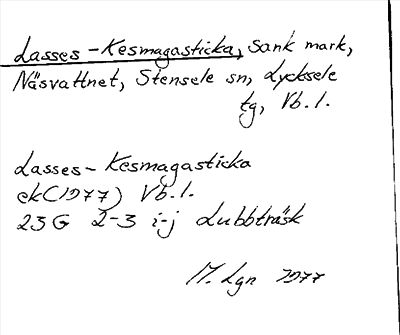 Lasses-Kesmagasticka, sank mark,
Näsvattnet, Stensele sn, Lycksele
tg, Vb.l.
Lasses-Kesmagasticka
ek(1977) Vb.l.
23G 2-3 i-j Lubbträsk
M. Lgn 1977